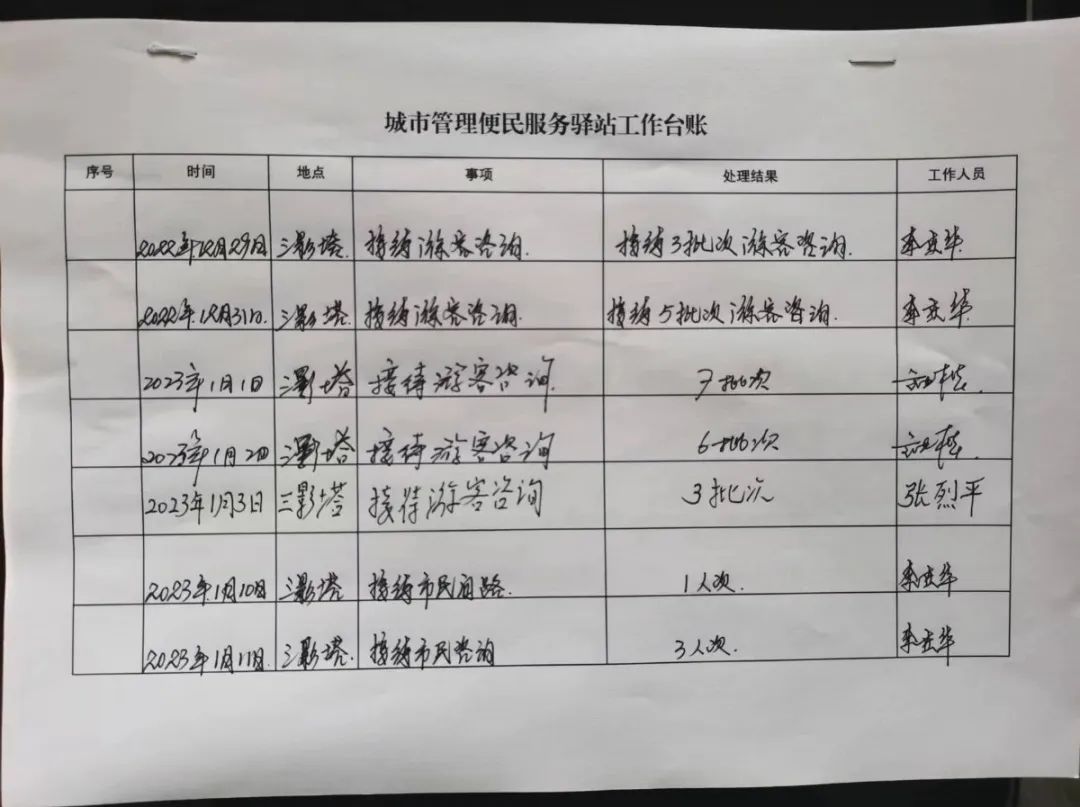 城市管理便民服务驿站工作台账
序号 时间 地点 事项 处理结果 工作人员
2022年12月29日 三影塔 接待游客咨询. 接待3批次游客咨询.
2022年12月31日 三影塔 接待游客咨询. 接待5批次游客咨询.
2023年1月1日 三影塔 接待游客咨询 7批次
2023年1月2日 三影塔 接待游客咨询 6批次
2023年1月3日 三影塔 接待游客咨询 3批次 张烈平
2023年1月10日 三影塔 接待市民问路. 1人次.
2023年1月11日 三影塔. 接待市民咨询 3人次.